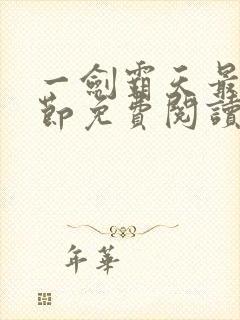 一劍霸天最
節免費閱讀
年華